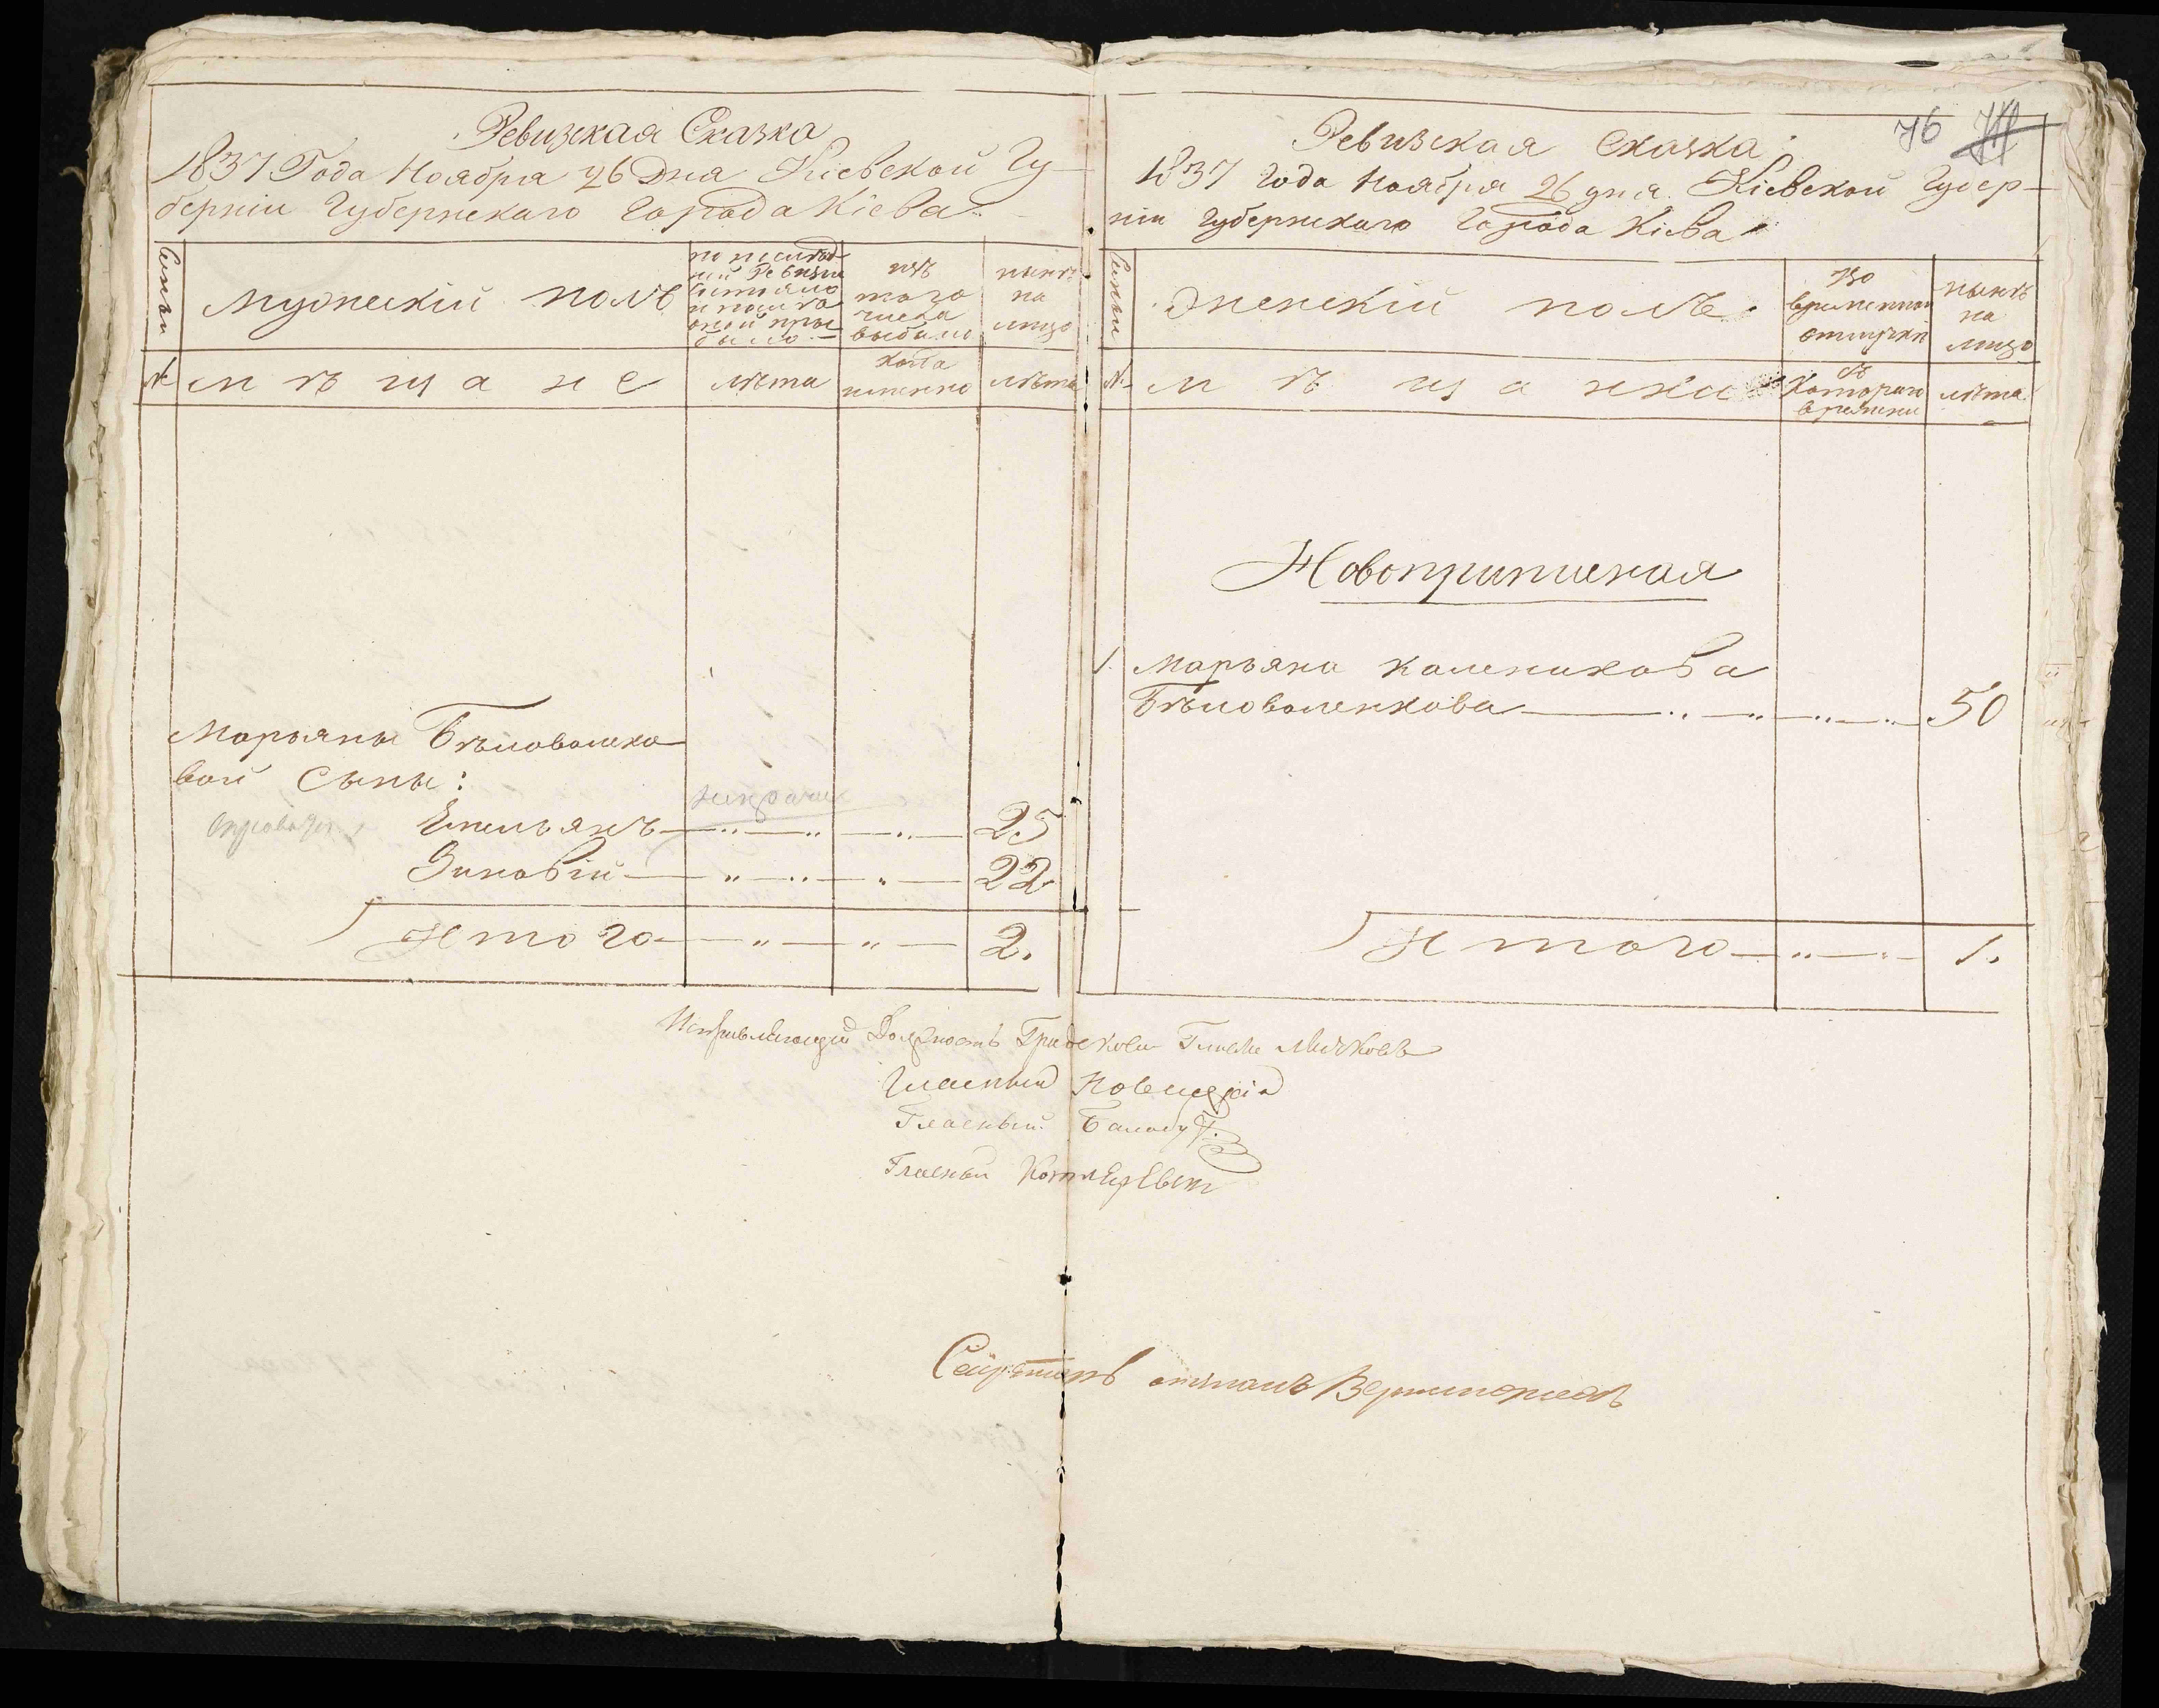 Ревизская Сказка
1837 Года Ноября 26 Дня Кіевской Гу-
берніи Губернскаго Города Кіева.
Семьи
Мужескій полъ
по послѣд-
ней Ревизіи
состояло
и послѣ
оной при-
было
изъ
того
числа
выбыло
нынѣ
на
лицо
№
мѣщане
лѣта
когда
именно
лѣта
Марьяны Бѣловоленко-
вой Сыны:
Емельянъ 25
Зиновій 22.
Итого 2.
Ревизская Сказка.
76
1837 Года Ноября 26 дня. Кіевской Губер-
ніи Губернскаго Города Кіева
Семьи
Женскій полъ.
Во
временной
отлучкѣ
нынѣ
на
лицо
№
мѣщанки
съ
котораго
времени
лѣта.
Новоприписная
1. Марьяна Каленикова
Бѣловоленкова 50
Итого 1.
Исправляющій Должность Градскова Главы
Гласный Новицкій
Гласный
Гласный